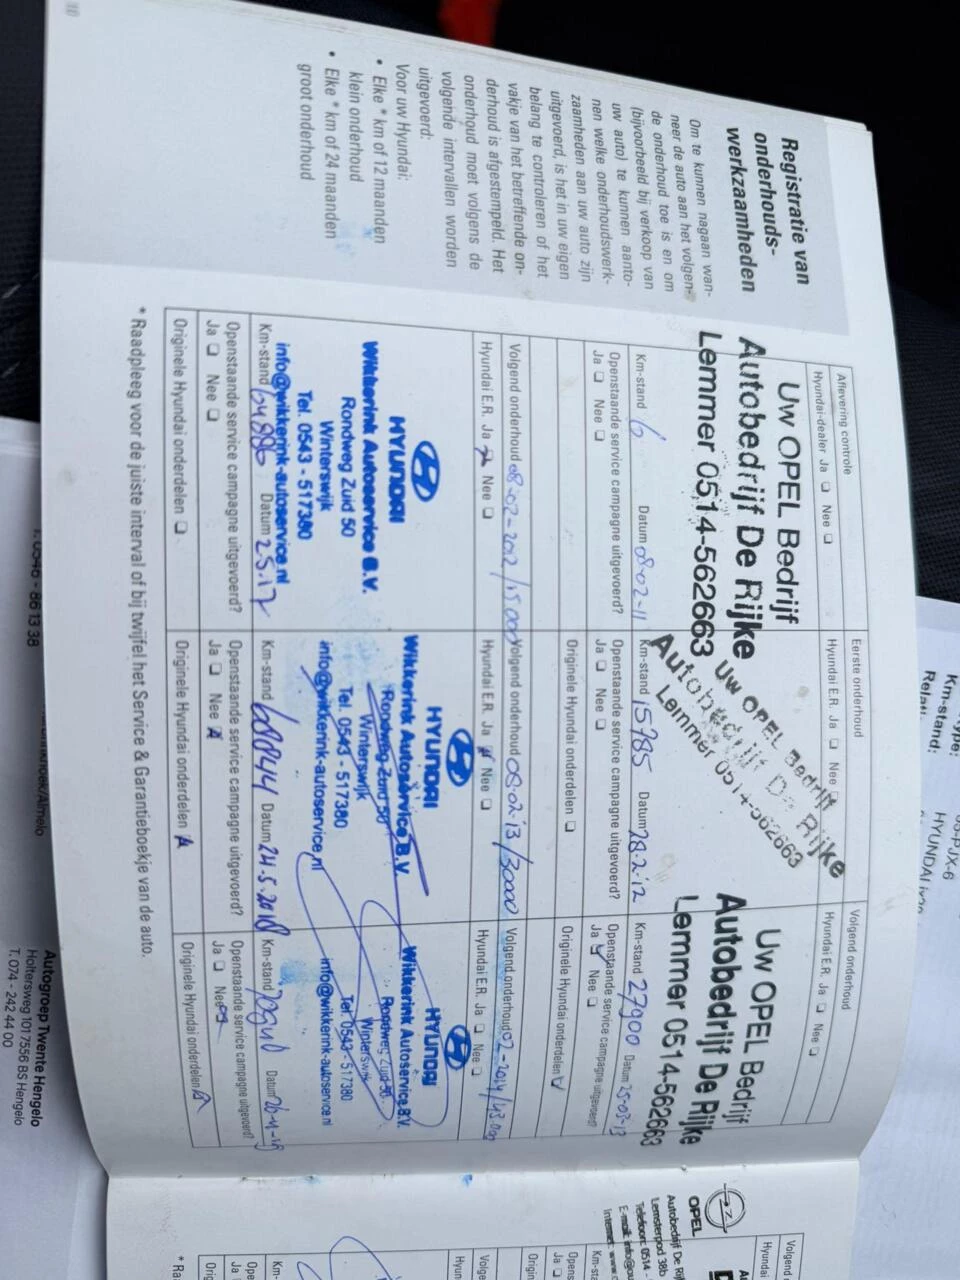 10
Registratie van
onderhouds-
werkzaamheden
Om te kunnen nagaan wan-
neer de auto aan het volgen-
de onderhoud toe is en om
(bijvoorbeeld bij verkoop van
uw auto) te kunnen aanto-
nen welke onderhoudswerk-
zaamheden aan uw auto zijn
uitgevoerd, is het in uw eigen
belang te controleren of het
vakje van het betreffende on-
derhoud is afgestempeld. Het
onderhoud moet volgens de
volgende intervallen worden
uitgevoerd:
Voor uw Hyundai:
• Elke * km of 12 maanden
klein onderhoud
• Elke * km of 24 maanden
groot onderhoud
Aflevering controle
Hyundai-dealer Ja ❑ Nee ❑
Uw OPEL Bedrijf
Autobedrijf De Rijke
Lemmer 0514-562663
Km-stand 6 Datum 08-02-11
Openstaande service campagne uitgevoerd?
Ja ❑ Nee ❑
Volgend onderhoud 08-02-2012/15000
Hyundai E.R. Ja ❑ Nee ❑
HYUNDAI
Wikkerink Autoservice B.V.
Rondweg Zuid 50
Winterswijk
Tel. 0543 - 517380
info@wikkerink-autoservice.nl
Km-stand 64886 Datum 2.5.17
Openstaande service campagne uitgevoerd?
Ja ❑ Nee ❑
Originele Hyundai onderdelen ❑
Eerste onderhoud
Hyundai E.R. Ja ❑ Nee ❑
Uw OPEL Bedrijf
Autobedrijf De Rijke
Lemmer 0514-562663
Km-stand 15785 Datum 28-2-'12
Openstaande service campagne uitgevoerd?
Ja ❑ Nee ❑
Originele Hyundai onderdelen ❑
Volgend onderhoud 08-02-'13/30000
Hyundai E.R. Ja ❑ Nee ❑
HYUNDAI
Wikkerink Autoservice B.V.
Rondweg Zuid 50
Winterswijk
Tel. 0543 - 517380
info@wikkerink-autoservice.nl
Km-stand Datum 24-5-2018
Openstaande service campagne uitgevoerd?
Ja ❑ Nee ❑
Originele Hyundai onderdelen
Volgend onderhoud
Hyundai E.R. Ja ❑ Nee ❑
Uw OPEL Bedrijf
Autobedrijf De Rijke
Lemmer 0514-562663
Km-stand 27900 Datum 25-03-13
Openstaande service campagne uitgevoerd?
Ja ❑ Nee ❑
Originele Hyundai onderdelen ❑
Volgend onderhoud 02-2014/45.000
Hyundai E.R. Ja ❑ Nee ❑
HYUNDAI
Wikkerink Autoservice B.V.
Rondweg Zuid 50
Winterswijk
Tel. 0543 - 517380
info@wikkerink-autoservice.nl
Km-stand Datum
Openstaande service campagne uitgevoerd?
Ja ❑ Nee
Originele Hyundai onderdelen
* Raadpleeg voor de juiste interval of bij twijfel het Service & Garantieboekje van de auto.
Volgend
Hyundai
OPEL
Autobedrijf De
Lemsterpad 38b
Telefoon: 0514 -
E-mail: info@
Internet: www.
Km-sta
Openst
Ja ❑
Origin
Volge
Hyund
Km-
Ope
Ja
Orig
* Ra
Km-stand:
HYUNDAI
T. 0546 - 86 13 38
Autogroep Twente Hengelo
Holtersweg 101 7556 BS Hengelo
T. 074 - 242 44 00